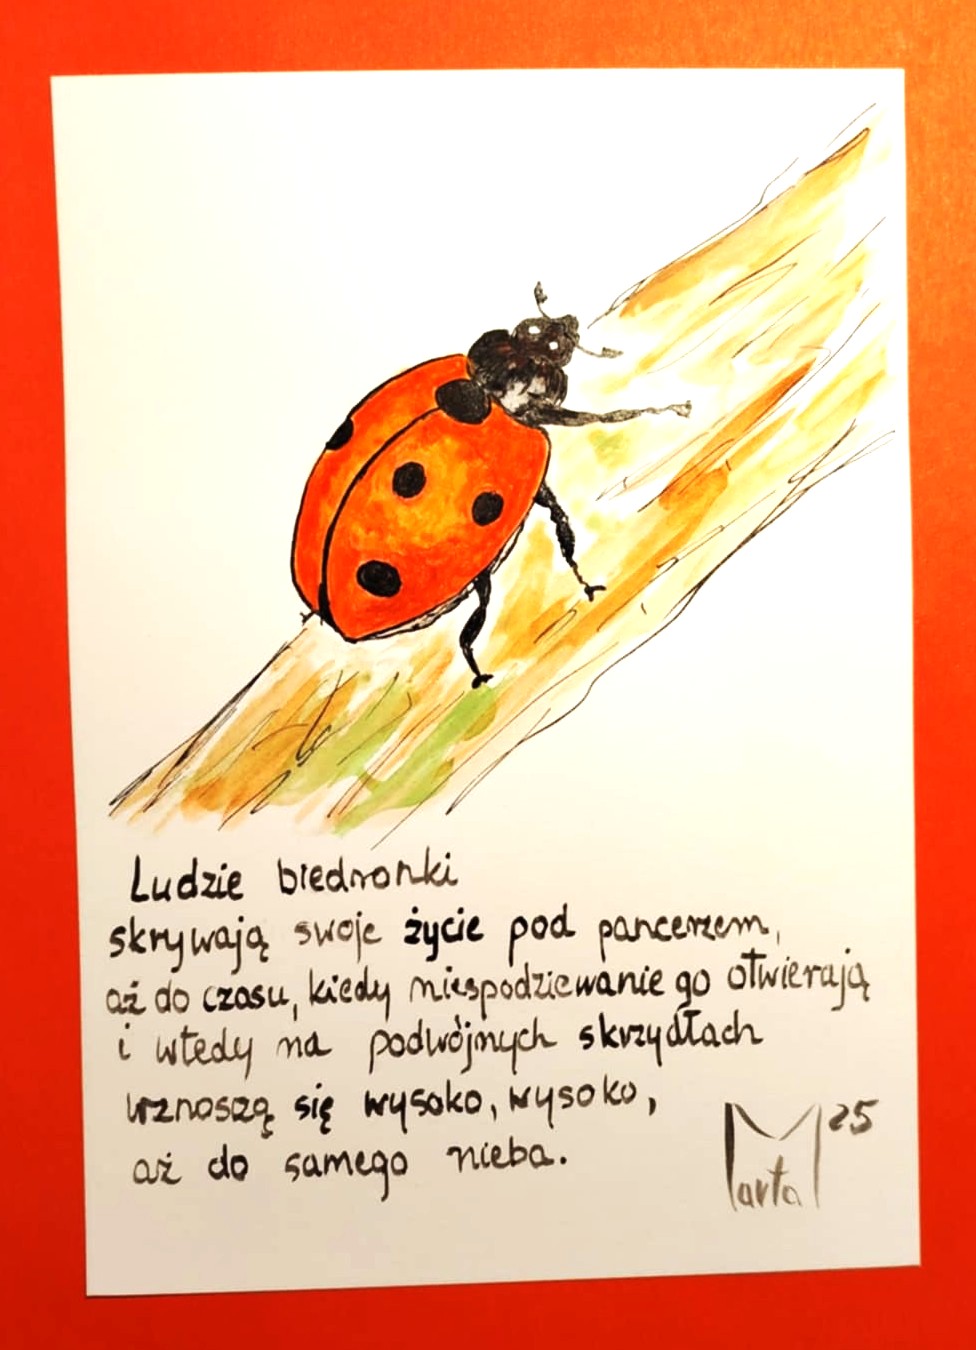 Ludzie biedronki
skrywają swoje życie pod pancerzem,
aż do czasu, kiedy niespodziewanie go otwierają
i wtedy na podwójnych skrzydłach
wznoszą się wysoko, wysoko,
aż do samego nieba.
Marta 25